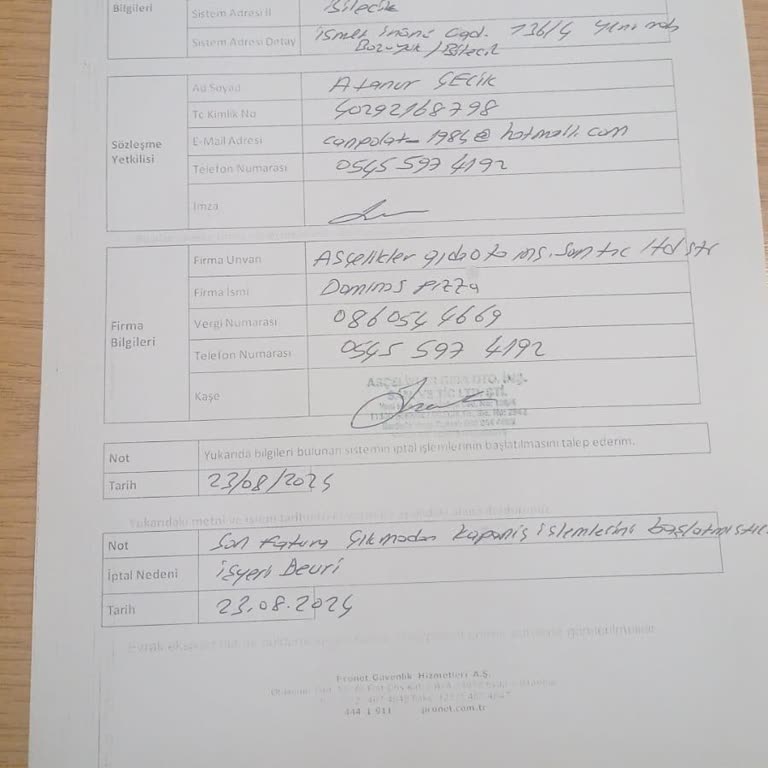 Bilgileri
Sistem Adresi II Bilecik
Sistem Adresi Detay İsmet inönü cad. 136/4 yeni mah
Bozüyük/Bilecik
Sözleşme Yetkilisi
Ad Soyad Atanur ÇELİK
Tc Kimlik No 40292168798
E-Mail Adresi canpolat_1984@hotmail.com
Telefon Numarası 0545 597 4192
İmza
Firma Bilgileri
Firma Unvan ASçelikler gıda oto inş. San tic ltd şti
Firma İsmi Dominos pizza
Vergi Numarası 0860544669
Telefon Numarası 0545 597 4192
Kaşe
Not Yukarıda bilgileri bulunan sistemin iptal işlemlerinin başlatılmasını talep ederim.
Tarih 23/08/2024
Not Son fatura çıkmadan kapanış işlemlerini
İptal Nedeni İşyeri Devri
Tarih 23.08.2024
Pronet Güvenlik Hizmetleri A.Ş.
444 1 911 pronet.com.tr